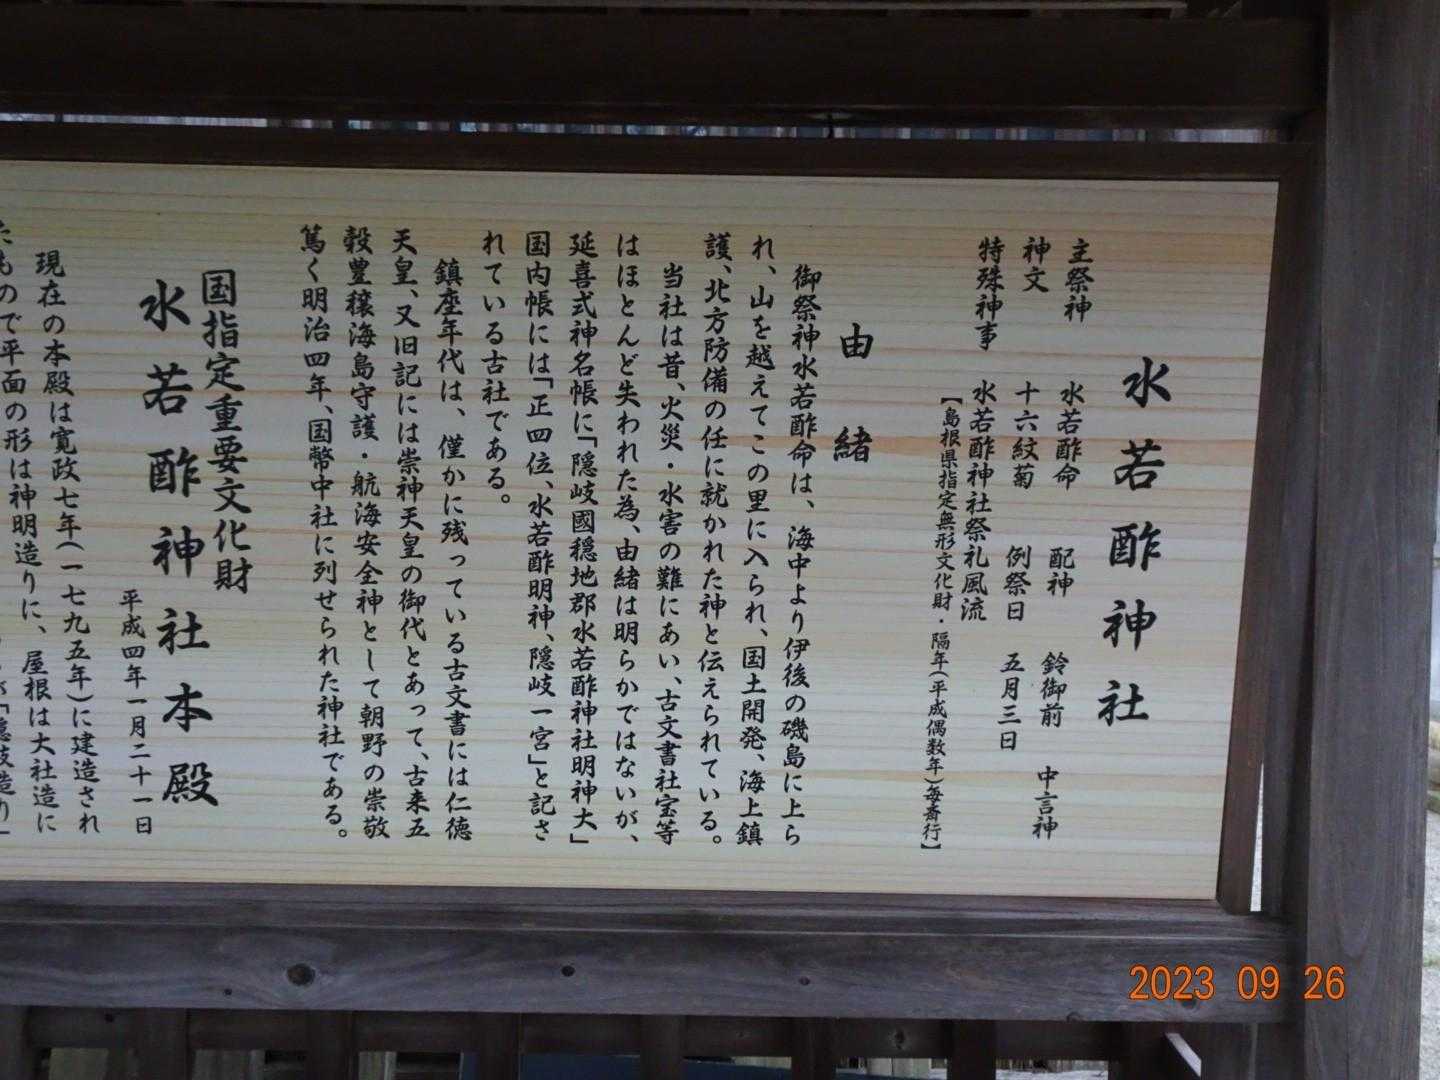 水若酢神社
主祭神　水若酢命　配神　鈴御前　中言神
神文　十六紋菊　例祭日　五月三日
特殊神事　水若酢神社祭礼風流
【島根県指定無形文化財・隔年（平成偶数年）毎斎行】
由緒
御祭神水若酢命は、海中より伊後の磯島に上ら
れ、山を越えてこの里に入られ、国土開発、海上鎮
護、北方防備の任に就かれた神と伝えられている。
当社は昔、火災・水害の難にあい、古文書社宝等
はほとんど失われた為、由緒は明らかではないが、
延喜式神名帳に「隠岐國穏地郡水若酢神社明神大」
国内帳には「正四位、水若酢明神、隠岐一宮」と記さ
れている古社である。
鎮座年代は、僅かに残っている古文書には仁徳
天皇、又旧記には崇神天皇の御代とあって、古来五
穀豊穣海島守護・航海安全神として朝野の崇敬
篤く明治四年、国幣中社に列せられた神社である。
国指定重要文化財
水若酢神社本殿
平成四年一月二十一日
現在の本殿は寛政七年（一七九五年）に建造され
たもので平面の形は神明造りに、屋根は大社造に
「隠岐造り」
2023 09 26